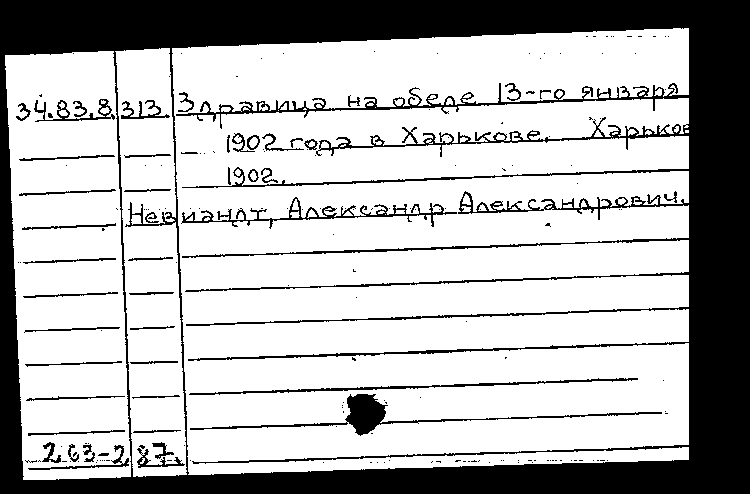 34.83.8.313. Здравица на обеде 13-го января
1902 года в Харькове. Харьков
1902.
Невиандт, Александр Александрович.
2.63-2.87.